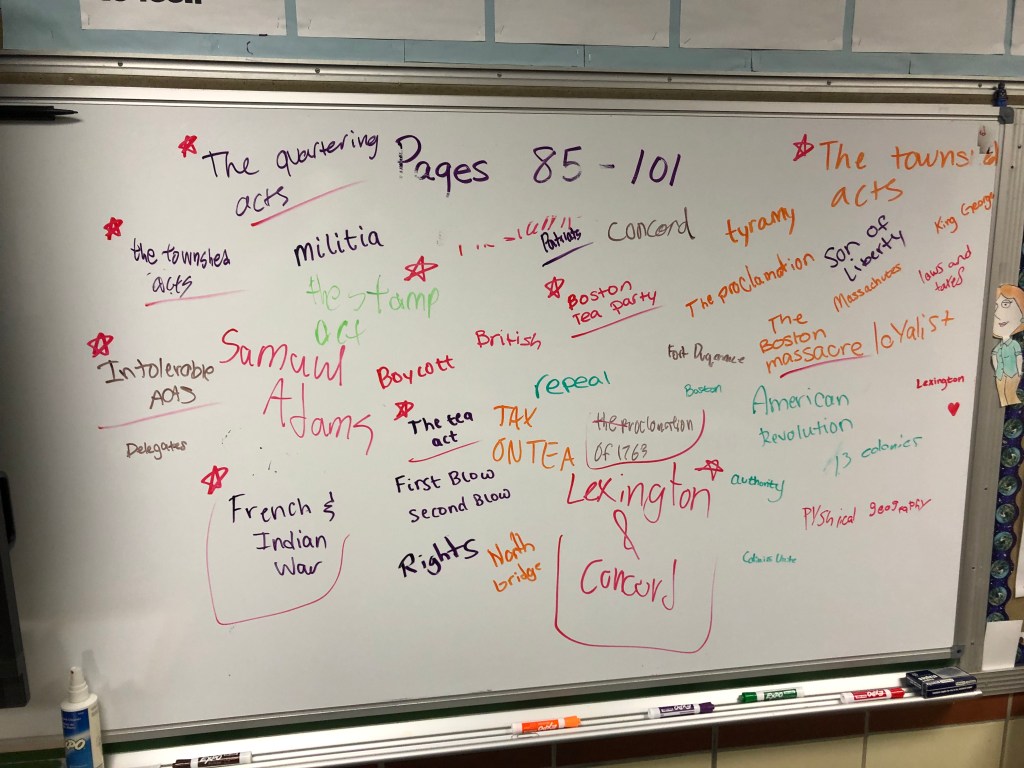 The quartering
acts
Pages 85 - 101
The towns
acts
the townshed
acts
militia
Patriots
Concord
tyramy
Son of
Liberty
King George
the stamp
act
Boston
Tea party
The proclamation
Massachutes
laws and
taxes
Intolerable
Acts
Samauul
Adams
Boycott
British
repeal
The
Boston
massacre
loYalist
Boston
Lexington
Delegates
The tea
act
TAX
ON TEA
the proclamation
Of 1763
American
Revolution
13 colonies
French &
Indian
War
First Blow
second Blow
Lexington
&
Concord
authority
PYShical geography
Rights
North
bridge
EXPO